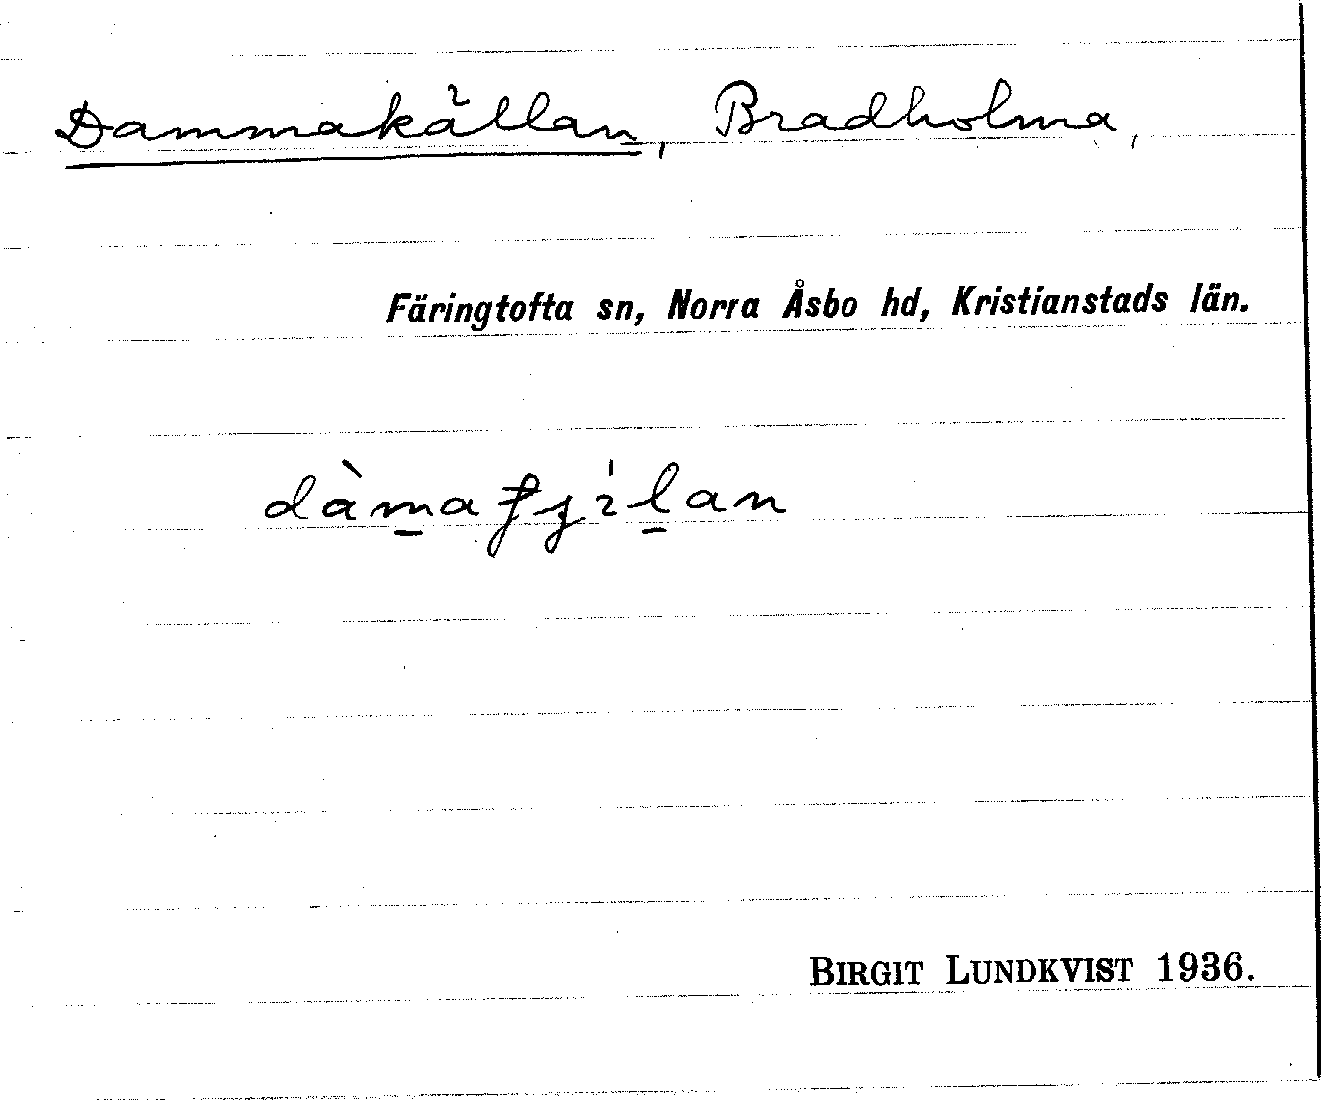 Dammakällan, Bradholma,
Färingtofta sn, Norra Åsbo hd, Kristianstads län.
BIRGIT LUNDKVIST 1936.